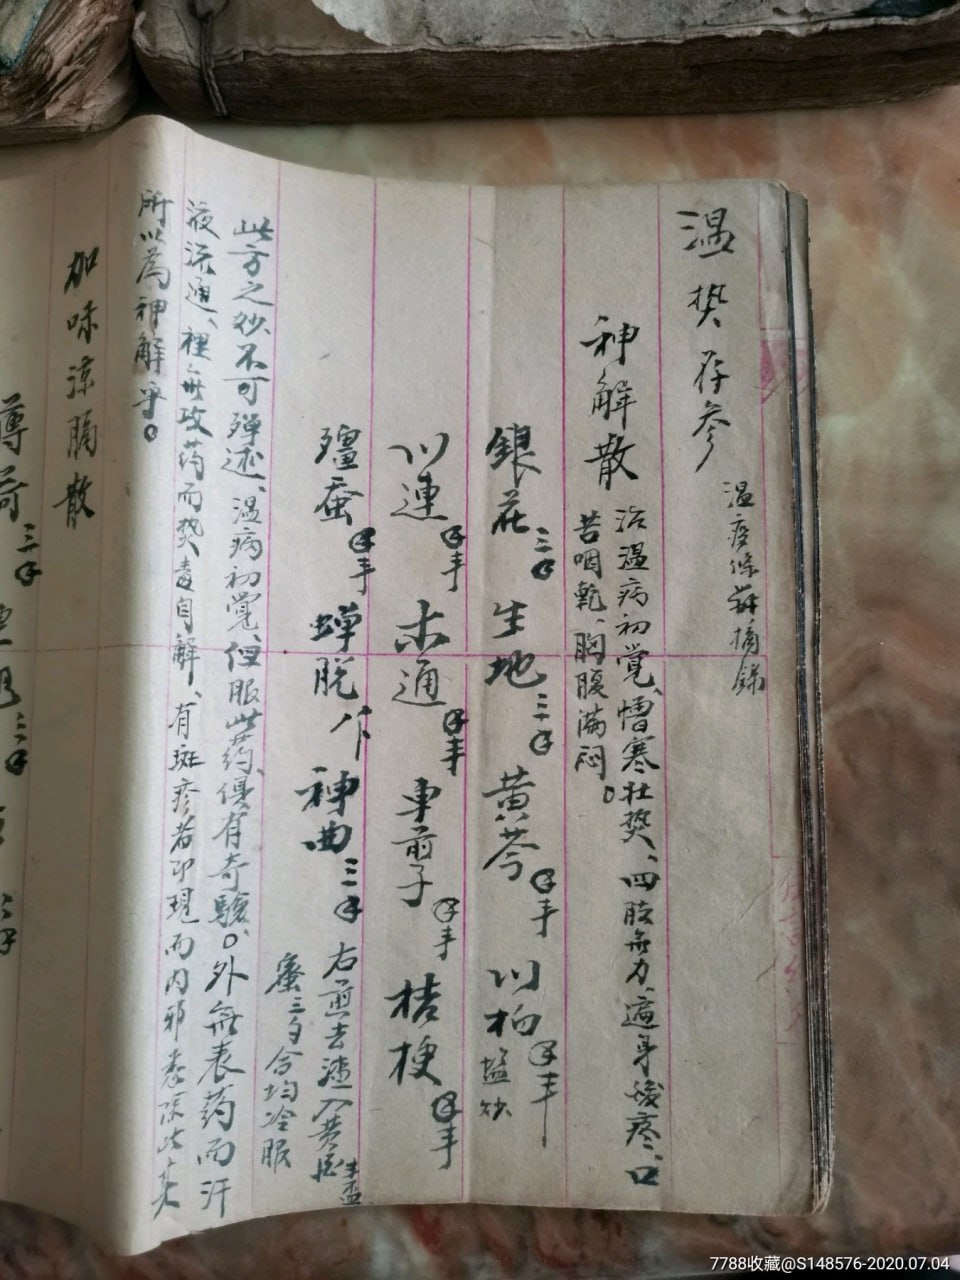 温热存参
温疫条辨摘録
神解散
治温病初覚、憎寒壮热、四肢無力、遍身酸疼、口
苦咽乾、胸腹满闷。
銀花三钱 生地三钱 黄芩 川柏 塩炒
川連 木通 車前子 桔梗
殭蚕 蝉脱 神曲三钱
右煎去渣入黄酒半盃
蜜三匀合均冷服
此方之妙不可殚述、温病初覚、但服此药、便有奇驗。外無表药而汗
液流通、裡無攻药而热毒自解、有斑疹者即現而内邪悉除此其
所以為神解乎。
加味涼膈散
三钱
三钱
7788收藏@S148576-2020.07.04